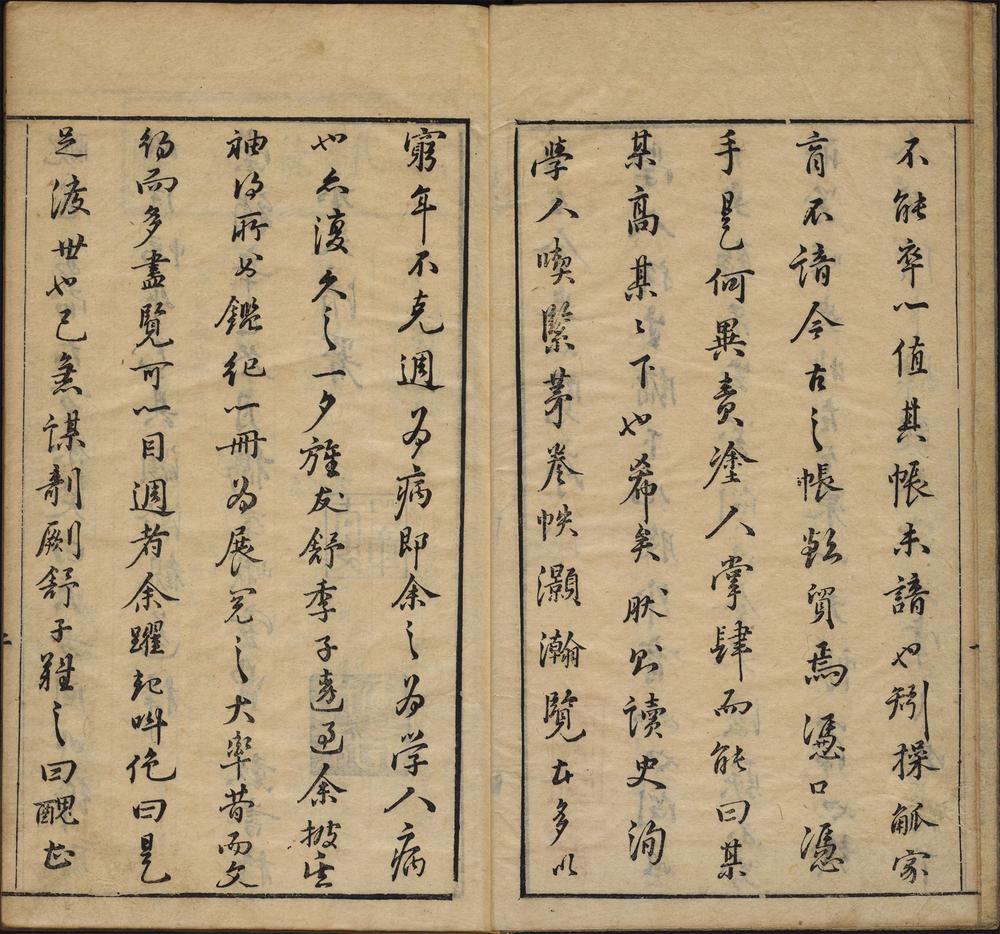 不能卒以值其帳未諳也矧操觚家
不諳今古之帳貿焉憑口憑
手是何異責塗人掌肆而能曰某
某高某〻下也希矣肰則讀史洵
學人喫緊苐卷帙灝瀚覽者多以
窮年不克週為病即余之為学人病
也亦復久之一夕旌友舒季子過余披
袖得所為鑑紀一冊為展覓之大率昔而文
約而多盡覽可以目週者余躍起叫絶曰是
足渡世也已謀剞劂舒子難之曰醜